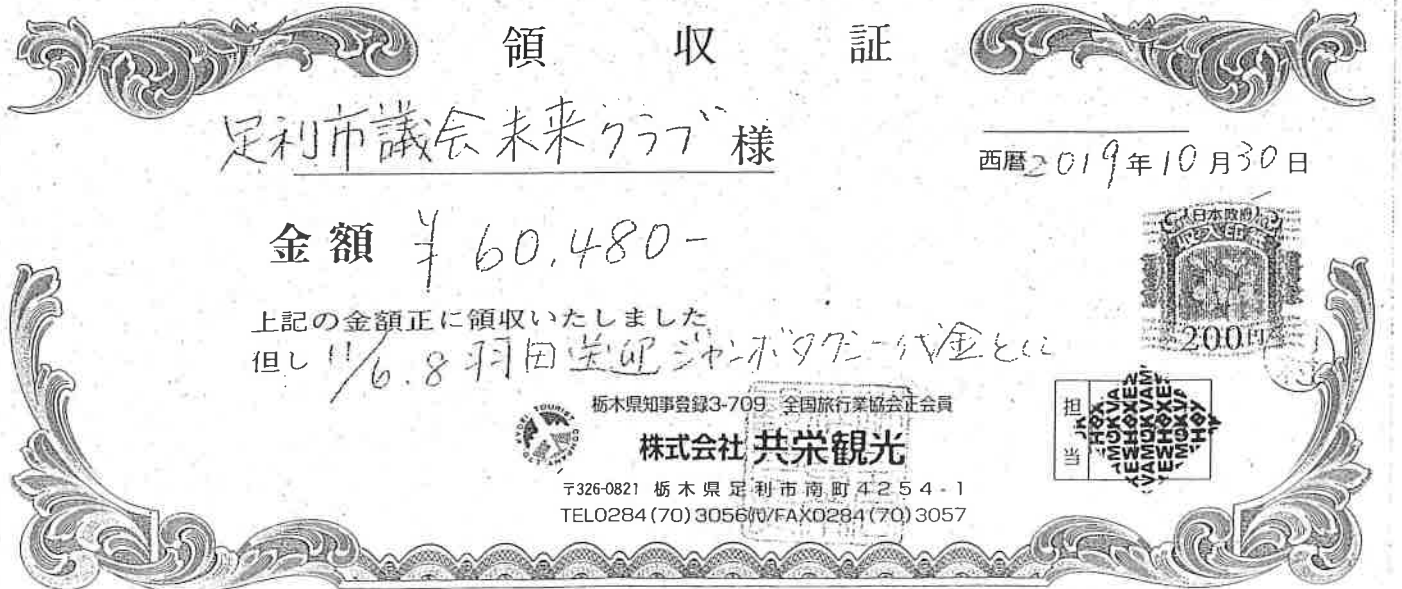 領収証
足利市議会未来クラブ 様
西暦2019年10月30日
金額 ¥60,480-
上記の金額正に領収いたしました
但し 11/6.8 羽田送迎ジャンボタクシー代金として
日本政府
収入印紙
200円
栃木県知事登録3-709 全国旅行業協会正会員
株式会社 共栄観光
〒326-0821 栃木県足利市南町4254-1
TEL0284(70)3056(代)/FAX0284(70)3057
担当